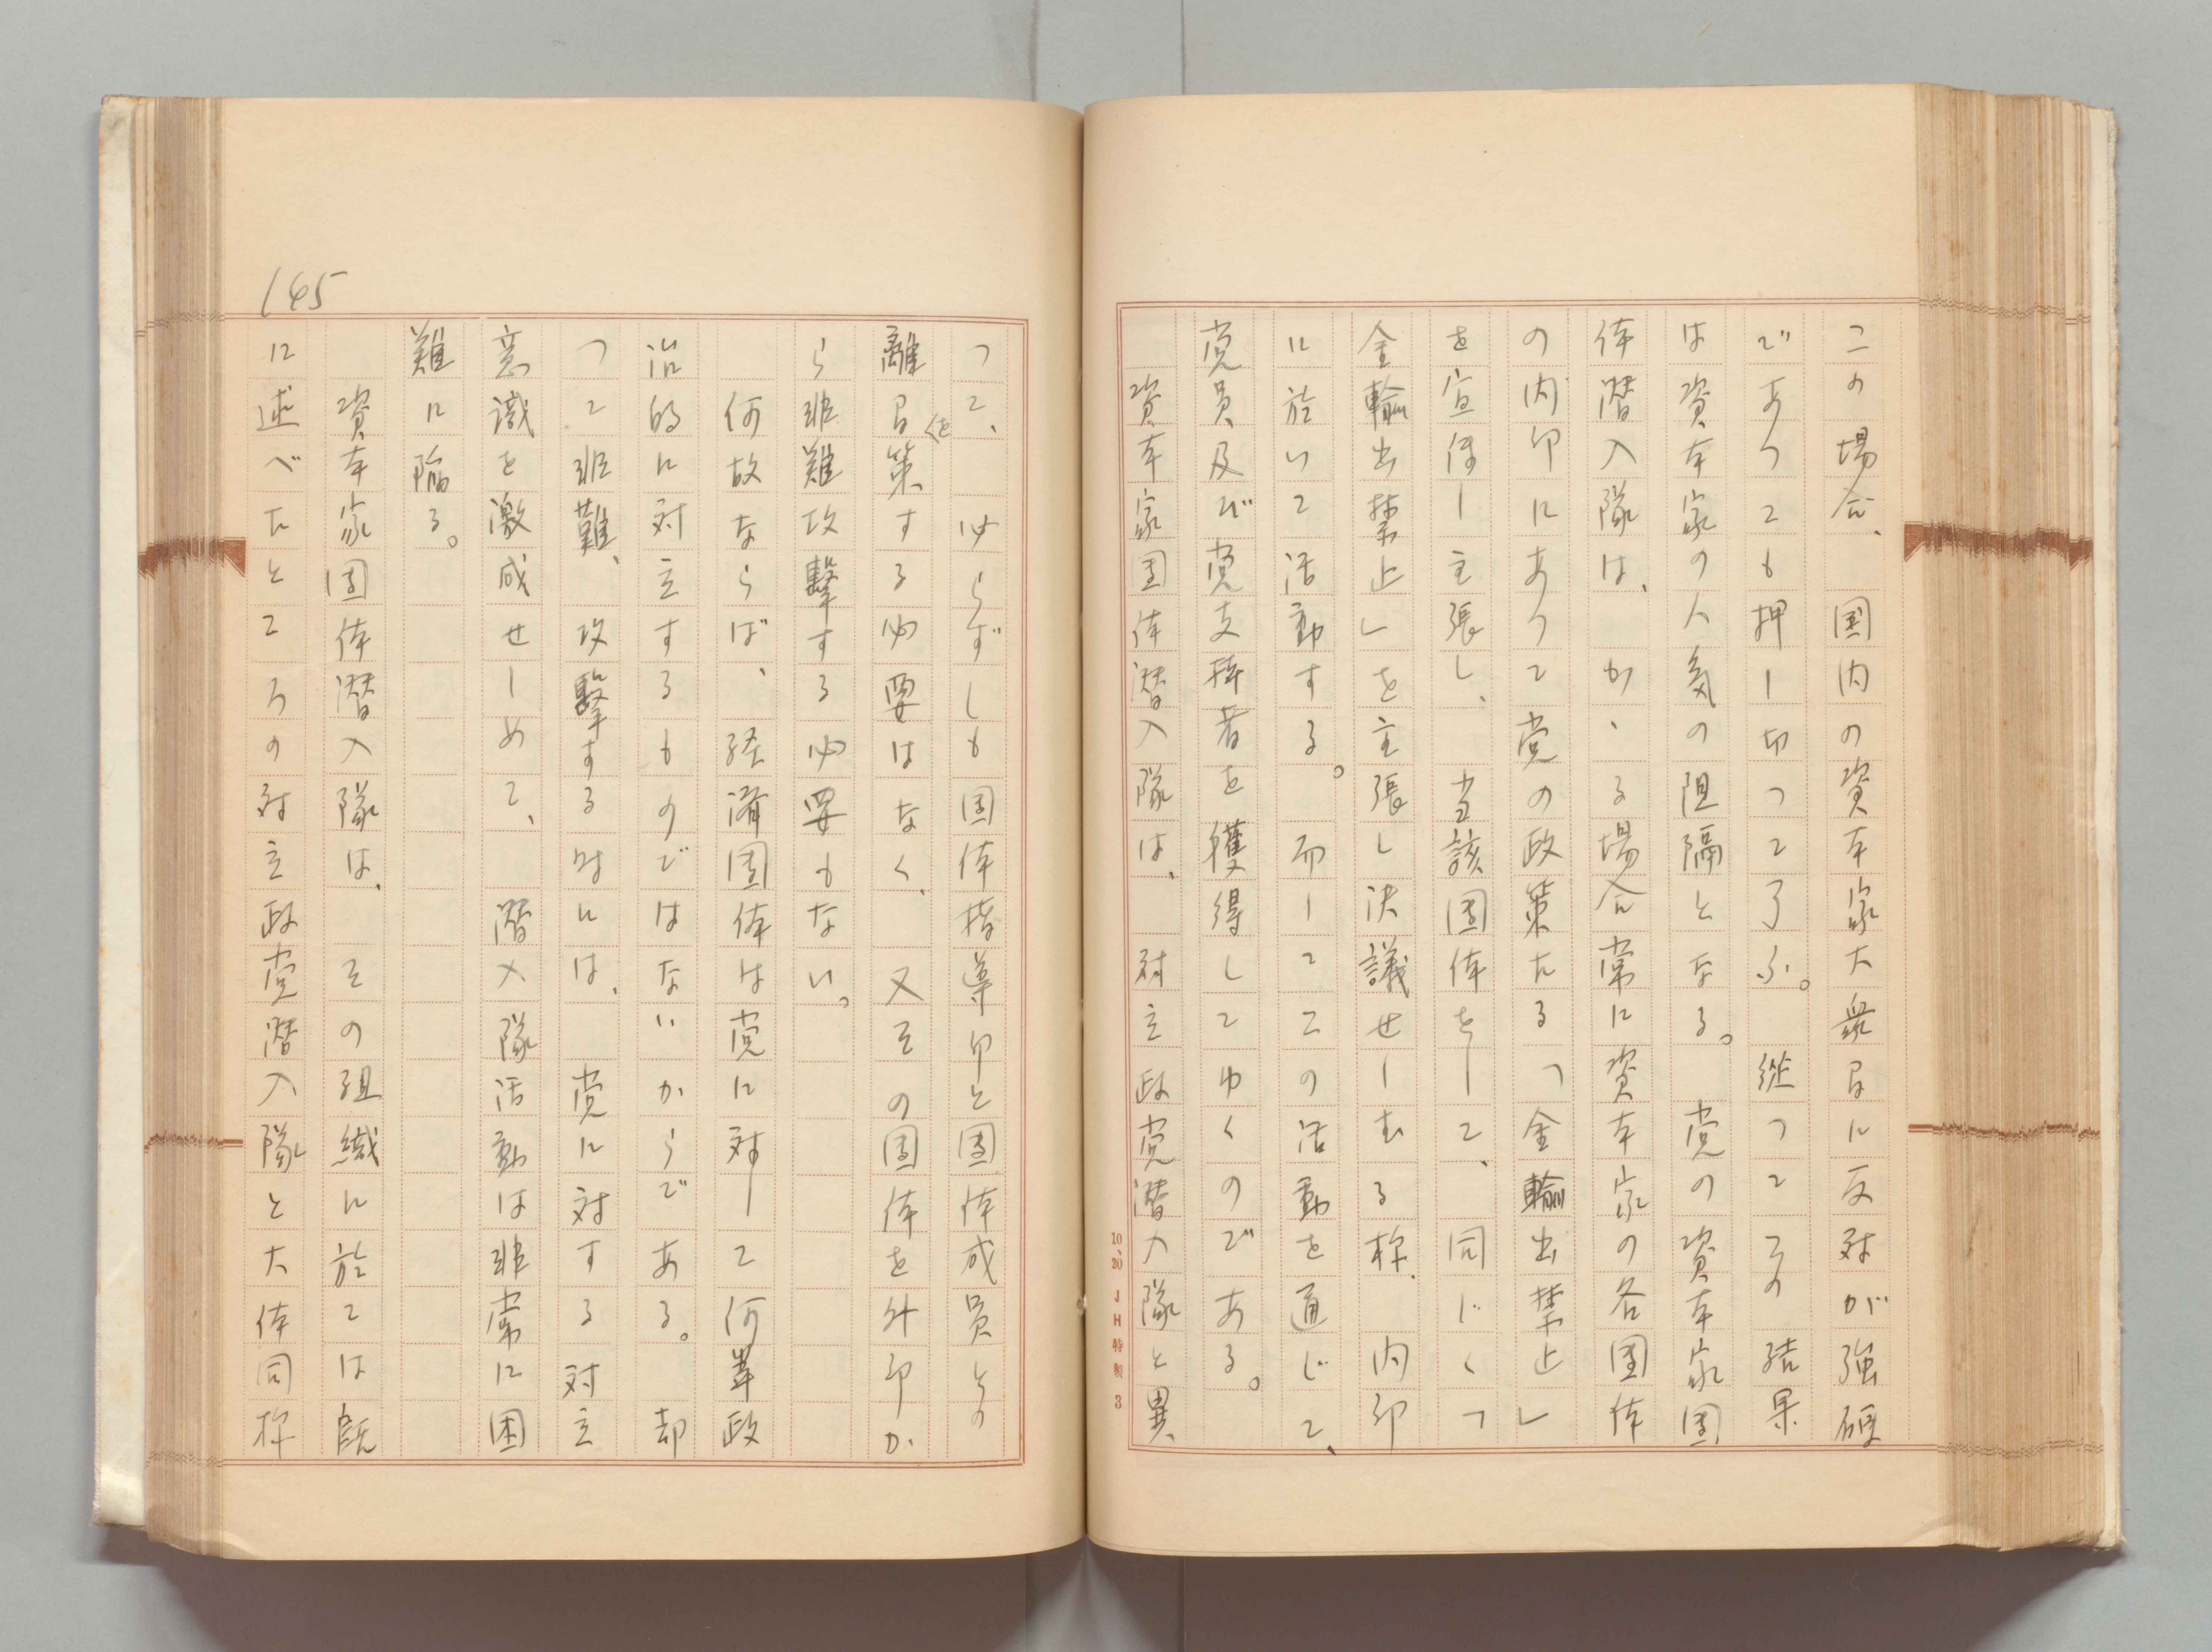 この場合、国内の資本家大衆間に反対が強硬
であつても押し切つて了ふ。従つてその結果
は資本家の人気の阻隔となる。党の資本家団
体潜入隊は、かゝる場合常に資本家の各団体
の内部にあつて党の政策たる「金輸出禁止」
を宣伝し主張し、当該団体をして、同じく「
金輸出禁止」を主張し決議せしむる様、内部
に於いて活動する。而してこの活動を通じて、
党員及び党支持者を獲得してゆくのである。
資本家団体潜入隊は、対立政党潜入隊と異
10、20 JH特製 3
145
つて、必らずしも団体指導部と団体成員との
離間を策する必要はなく、又その団体を外部か
ら非難攻撃する必要もない。
何故ならば、経済団体は党に対して何等政
治的に対立するものではないからである。却
つて非難、攻撃する時には、党に対する対立
意識を激成せしめて、潜入隊活動は非常に困
難に陥る。
資本家団体潜入隊は、その組織に於ては既
に述べたところの対立政党潜入隊と大体同様